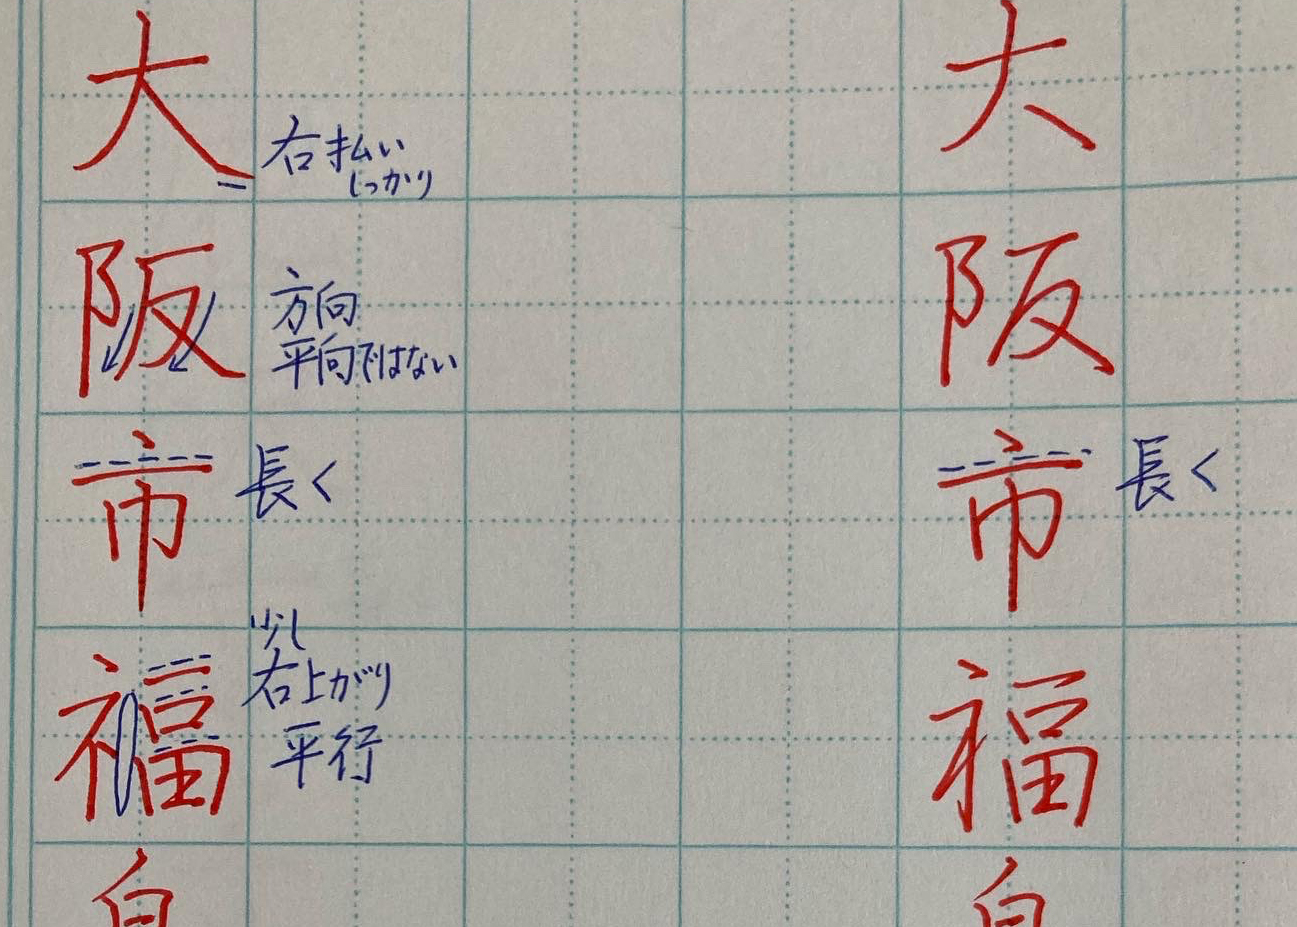 大
右払い
しっかり
阪
方向
平向ではない
市
長く
福
少し
右上がり
平行
大
阪
市
長く
福